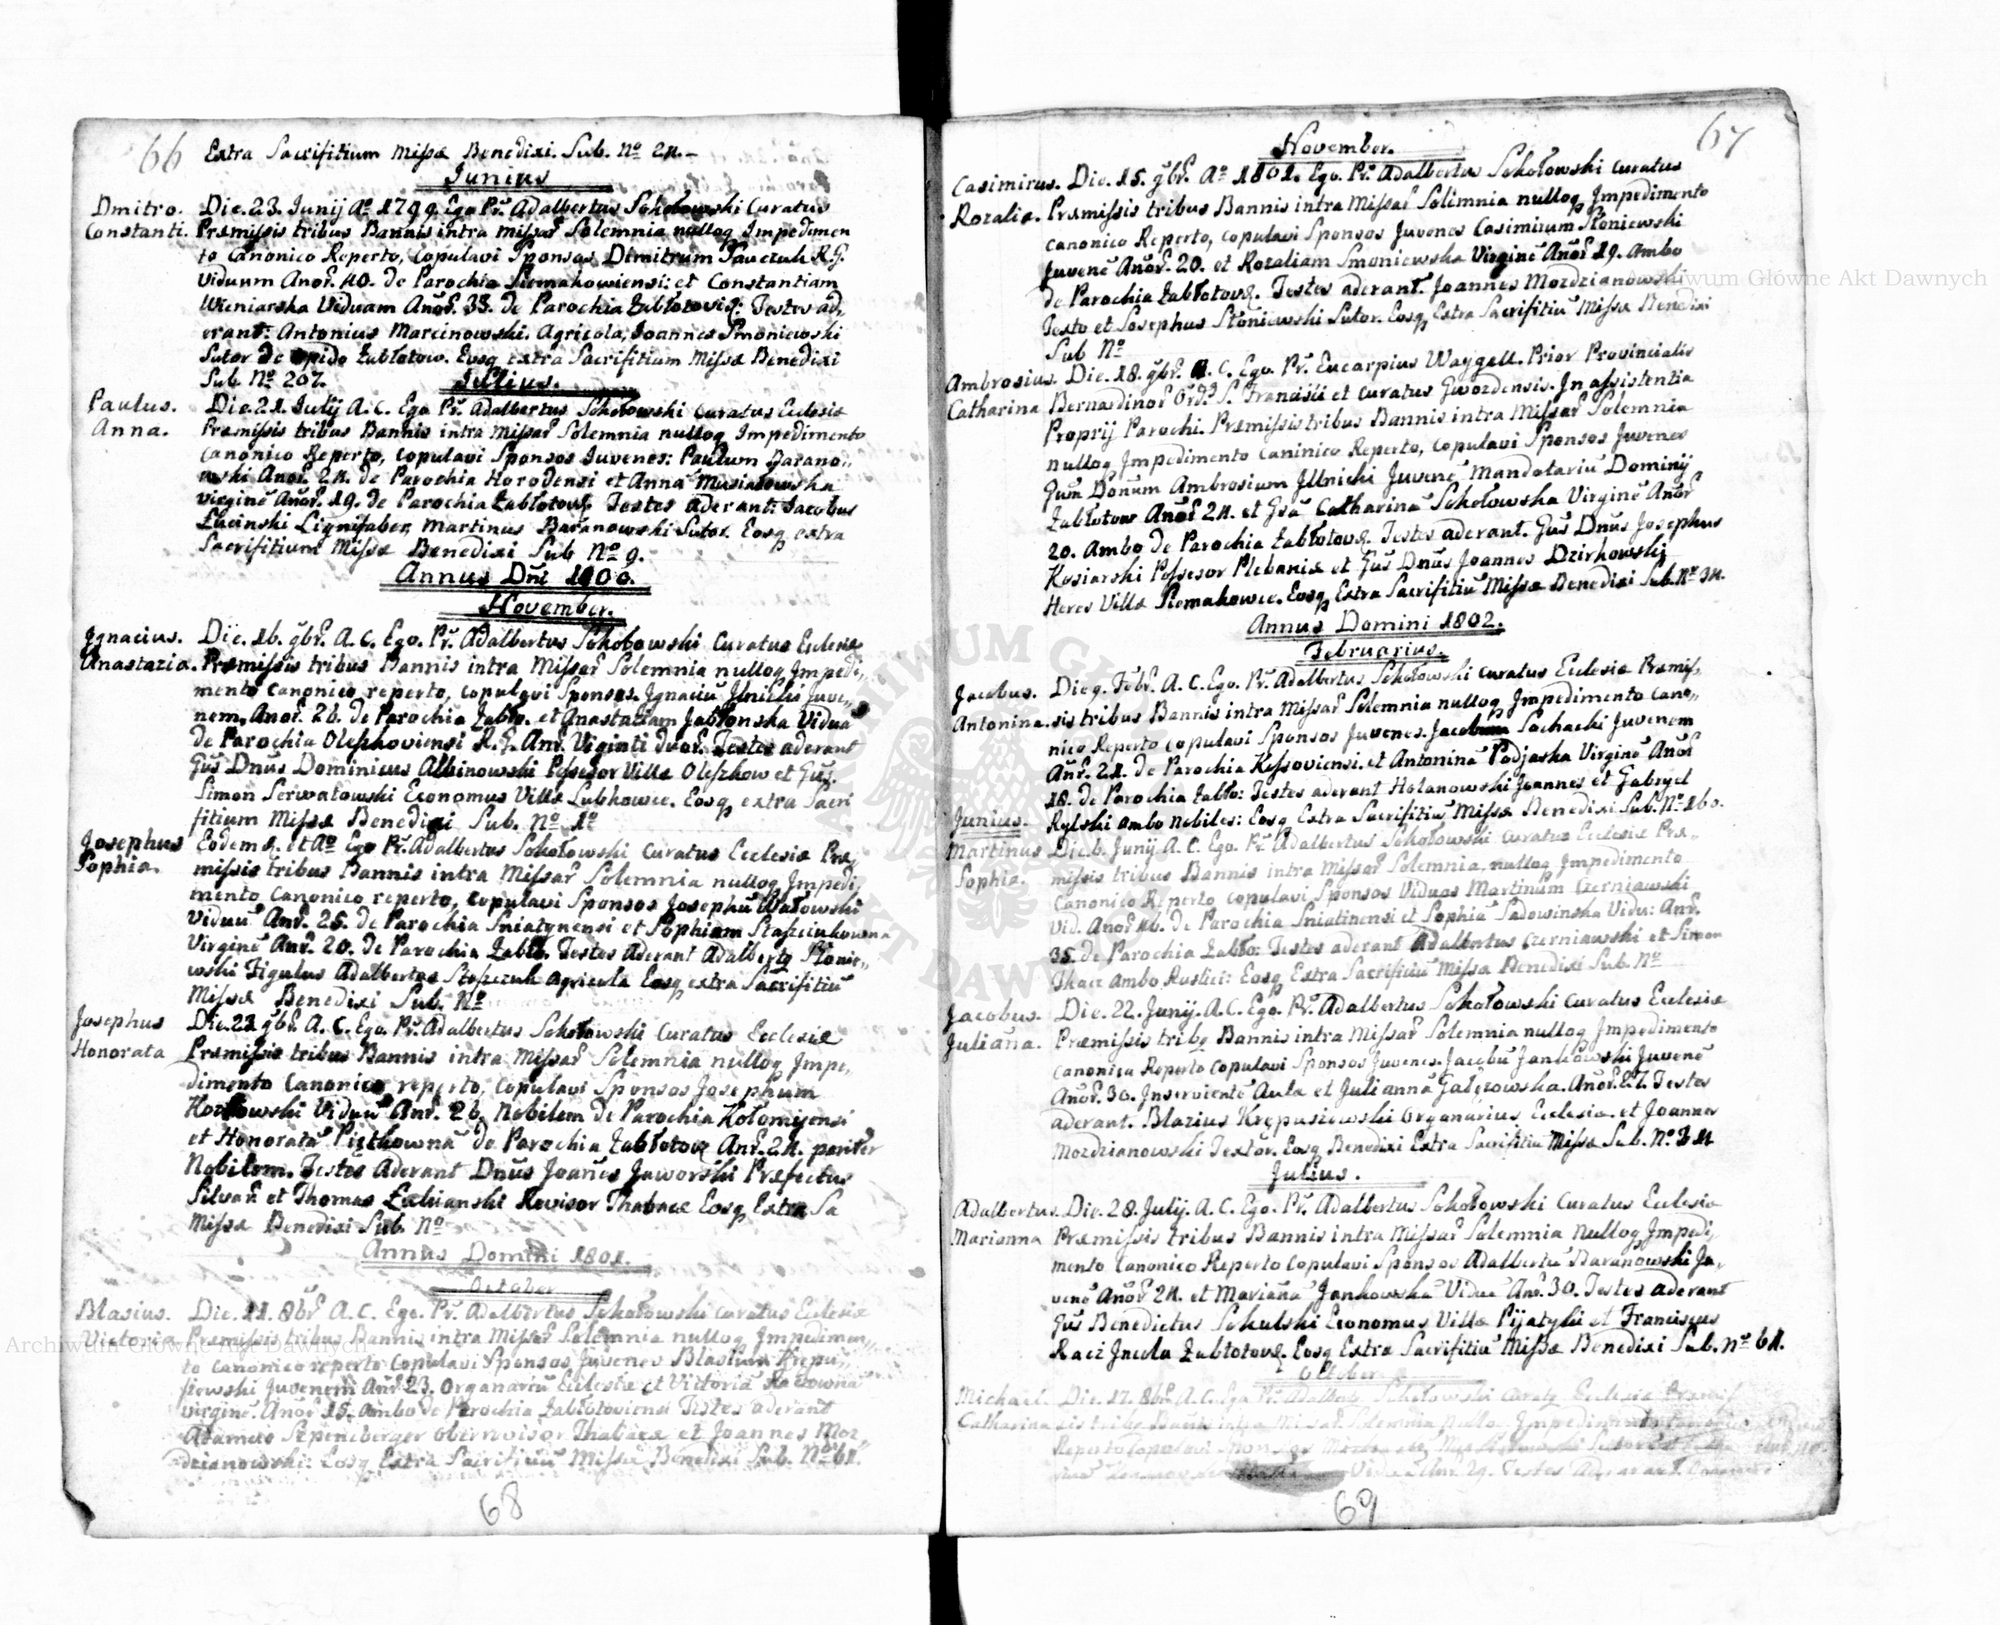 66
Extra Sacrifitium Missæ Benedixi. Sub. No 24.
Junius
Dmitro.
Constanti.
Die. 23. Junij Ao 1799. Ego Pr. Adalbertus Sokołowski Curatus
Præmissis tribus Bannis intra missar Solemnia nulloq Impedimen
to Canonico Reperto, copulavi Sponsos Dimitrum Sawczuk R.G.
Viduum Anor. 40. de Parochia Siemakowiensi: et Constantiam
Wieniarska Viduam Anor. 33. de Parochia Zabłotovi: Testes ad,
erant: Antonius Marcinowski. Agricola, Joannes Smoniewski
Sutor de opido Zabłotow. Eosq extra Sacrifitium Missæ Benedixi
Sub No 207.
Julius.
Paulus.
Anna.
Die. 21. Julij A. C. Ego Pr. Adalbertus Sokołowski Curatus Eclesiæ
Præmissis tribus Bannis intra Missar Solemnia nulloq Impedimento
Canonico Reperto, copulavi Sponsos Juvenes: Paulum Barano,,
wski Anor. 24. de Parochia Horodensi et Anna Musiałowska
virginē Anor. 19. de Parochia Zabłotov. Testes aderant: Jacobus
Łucinski Lignifaber, Martinus Baranowski Sutor. Eosq extra
Sacrifitium Missæ Benedixi Sub No 9.
Annus Dni 1800.
November.
Ignacius.
Anastazia.
Die. 16. 9br. A. C. Ego. Pr. Adalbertus Sokołowski Curatus Eclesiæ
Præmissis tribus Bannis intra Missar Solemnia nulloq Impedi,,
mento Canonico reperto, copulavi Sponsos. Ignaciū Ilnicki Juve,,
nem, Anor. 26. de Parochia Zabło. et Anastaziam Jabłonska Vidua
de Parochia Oleszkoviensi R.G. Anr. Viginti duor. Testes aderant
Gus Dnus Dominicus Albinowski Possesor Villæ Oleszkow et Gus.
Simon Serwatowski Economus Villæ Lubkowce. Eosq extra Sacri
fitium Missæ Benedixi Sub. No 1o
Josephus
Sophia.
Eodem 9. et Ao Ego Pr. Adalbertus Sokołowski Curatus Ecclesiæ Præ,
missis tribus Bannis intra Missar Solemnia nulloq Impedi,
mento Canonico reperto, copulavi Sponsos Josephū Watowski
Viduū Anr. 25. de Parochia Sniatynensi et Sophiam Staszciukowna
Virginē Anr. 20. de Parochia Zabło. Testes Aderant Adalbertq Słonie,,
wski Figulus Adalbertus Stopczuk agricola Eosq extra Sacrifitiū
Missæ Benedixi Sub. No
Josephus
Honorata
Die. 22 9br. A. C. Ego. Pr. Adalbertus Sokołowski Curatus Ecclesiæ
Præmissis tribus Bannis intra Missar Solemnia nulloq Impe,
dimento Canonico reperto, Copulavi Sponsos Josephum
Viduū Anr. 26. Nobilem de Parochia Kołomyensi
et Honoratā Piętkownā de Parochia Zabłotov Anr. 24. pariter
Nobilem. Testes Aderant Dnus Joanes Jaworski Præfectus
Silvar et Thomas Revisor Thabacæ Eosq Extra Sa
Missæ Benedixi Sub No
Annus Domini 1801.
October
Blasius.
Victoria
Die. 11. 8br. A. C. Ego. Pr. Adalbertus Sokołowski Curatus Eclesiæ
Præmissis tribus Bannis intra Missar Solemnia nulloq Impedimen,,
to Canonico reperto Copulavi Sponsos Juvenes Blasium Krepu,,
siewski Juvenem Anr. 23. Organariū Eclesiæ et Victoriā
virginē. Anor 15. ambo de Parochia Zabłotoviensi Testes aderant
Adamus Stpeneberger obervisor Thabacæ et Joannes Moz,,
dzianowski: Eosq Extra Sacrifitiū Missæ Benedixi Sub. No 61.
68
67
November.
Casimirus.
Rozalia.
Die. 15. 9br. Ao 1801. Ego. Pr. Adalbertus Sokołowski Curatus
Præmissis tribus Bannis intra Missar Solimnia nulloq Impedimento
canonico Reperto, copulavi Sponsos Juvenes Casimirum Słoniewski
Juvenē Anor. 20. et Rozaliam Smoniewska Virginē Anor 19. Ambo
de Parochia Zabłotov. Testes aderant. Joannes Mozdzianowski
Texto et Josephus Słoniewski Sutor. Eosq Extra Sacrifitiū Missæ Benedixi
Sub No
Ambrosius.
Catharina
Die. 18. 9br. A. C. Ego. Pr. Eucarpius Waygell. Prior Provincialis
Bernardinor Ord. S. Francisci et Curatus Gwozdensis. In assistentia
Proprij Parochi. Præmissis tribus Bannis intra Missar Solemnia
nulloq Impedimento Caninico Reperto, copulavi Sponsos Juvenes
Gum Donum Ambrosium Illnicki Juvenē Mandotariū Dominij
Zabłotow Anor 24. et Gsā Catharinā Sokołowska Virginē Anor
20. Ambo de Parochia Zabłotov. Testes aderant. Gus Dnus Josephus
Kosiarski Possesor Plebaniæ et Gus Dnus Joannes Dzirkowskij
Heres Villæ Siemakowce. Eosq Extra Sacrifitiū Missæ Benedixi Sub. No 34.
Annus Domini 1802.
Februarius.
Jacobus.
Antonina.
Die 9. Febr. A. C. Ego. Pr. Adalbertus Sokołowski Curatus Eclesiæ Præmis,
sis tribus Bannis intra Missar Solemnia nulloq Impedimento Cano,,
nico Reperto copulavi Sponsos Juvenes. Jacobum Sochacki Juvenem
Anr. 21. de Parochia Kossoviensi. et Antoninā Podjaska Virginē Anor
18. de Parochia Zabło: Testes aderant Holanowski Joannes et Gabryel
Rylski ambo Nobiles: Eosq Extra Sacrifitiū Missæ Benedixi Sub. No 160.
Junius.
Martinus
Sophia.
Die. 6. Junij A. C. Ego. Pr. Adalbertus Sokołowski Curatus Ecclesiæ Præ-
missis tribus Bannis intra Missar Solemnia, nulloq Impedimento
Canonico Reperto copulavi Sponsos Viduos Martinum Czerniawski
Vid. Anor 46. de Parochia Sniatinensi et Sophiā Sadowinska Vidu: Anr.
35. de Parochia Zabło. Testes aderant Adalbertus Czerniawski et Simon
Tkacz Ambo Rustici: Eosq Extra Sacrifitiū Missæ Benedixi Sub. No
Jacobus.
Juliana.
Die. 22. Junij. A. C. Ego. Pr. Adalbertus Sokołowski Curatus Ecclesiæ
Præmissis tribq Bannis intra Missar Solemnia nulloq Impedimento
Canonico Reperto Copulavi Sponsos Juvenes. Jacobū Jankowski Juvenē
Anor. 30. Inservientē Aulæ et Juliannā Gałęzowska. Anor. 27. Testes
aderant. Blazius Krępusiewski Organarius Ecclesiæ. et Joannes
Mozdzianowski Textor. Eosq Benedixi Extra Sacrifitiū Missæ Sub. No
Julius.
Adalbertus.
Marianna
Die. 28. Julij. A. C. Ego. Pr. Adalbertus Sokołowski Curatus Eclesiæ
Præmissis tribus Bannis intra Missar Solemnia Nulloq Impedi,
mento Canonico Reperto Copulavi Sponsos Adalbertū Baranowski Ju,
venē Anor 24. et Mariānā Jankowska Viduæ Anr. 30. Testes aderant
Gus Benedictus Sokulski Economus Villæ Pijatyki et Franciscus
Racz Incola Zabłotov. Eosq Extra Sacrifitiū Missæ Benedixi Sub. No 61.
October
Michael.
Catharina
Die. 17. 8br. A. C. Ego Pr. Adalbertq Sokołowski Curatq Ecclesiæ Præmis
sis tribq Bannis intra Missar Solemnia nulloq Impedimento
Reperto Copulavi Sponsos
Viduā Anr 29. Testes Aderant.
69
Archiwum Główne Akt Dawnych
Archiwum Główne Akt Dawnych
ARCHIWUM GŁÓWNE AKT DAWNYCH